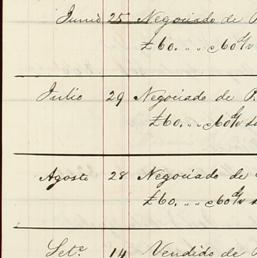 Junio 25 Negociado de P.
£60. „ „ c/60 d/v
Julio 29 Negociado de P.
£60. „ „ c/60 d/v
Agosto 28 Negociado de
£60. „ „ c/60 d/v
Sete. 14 Vendido de